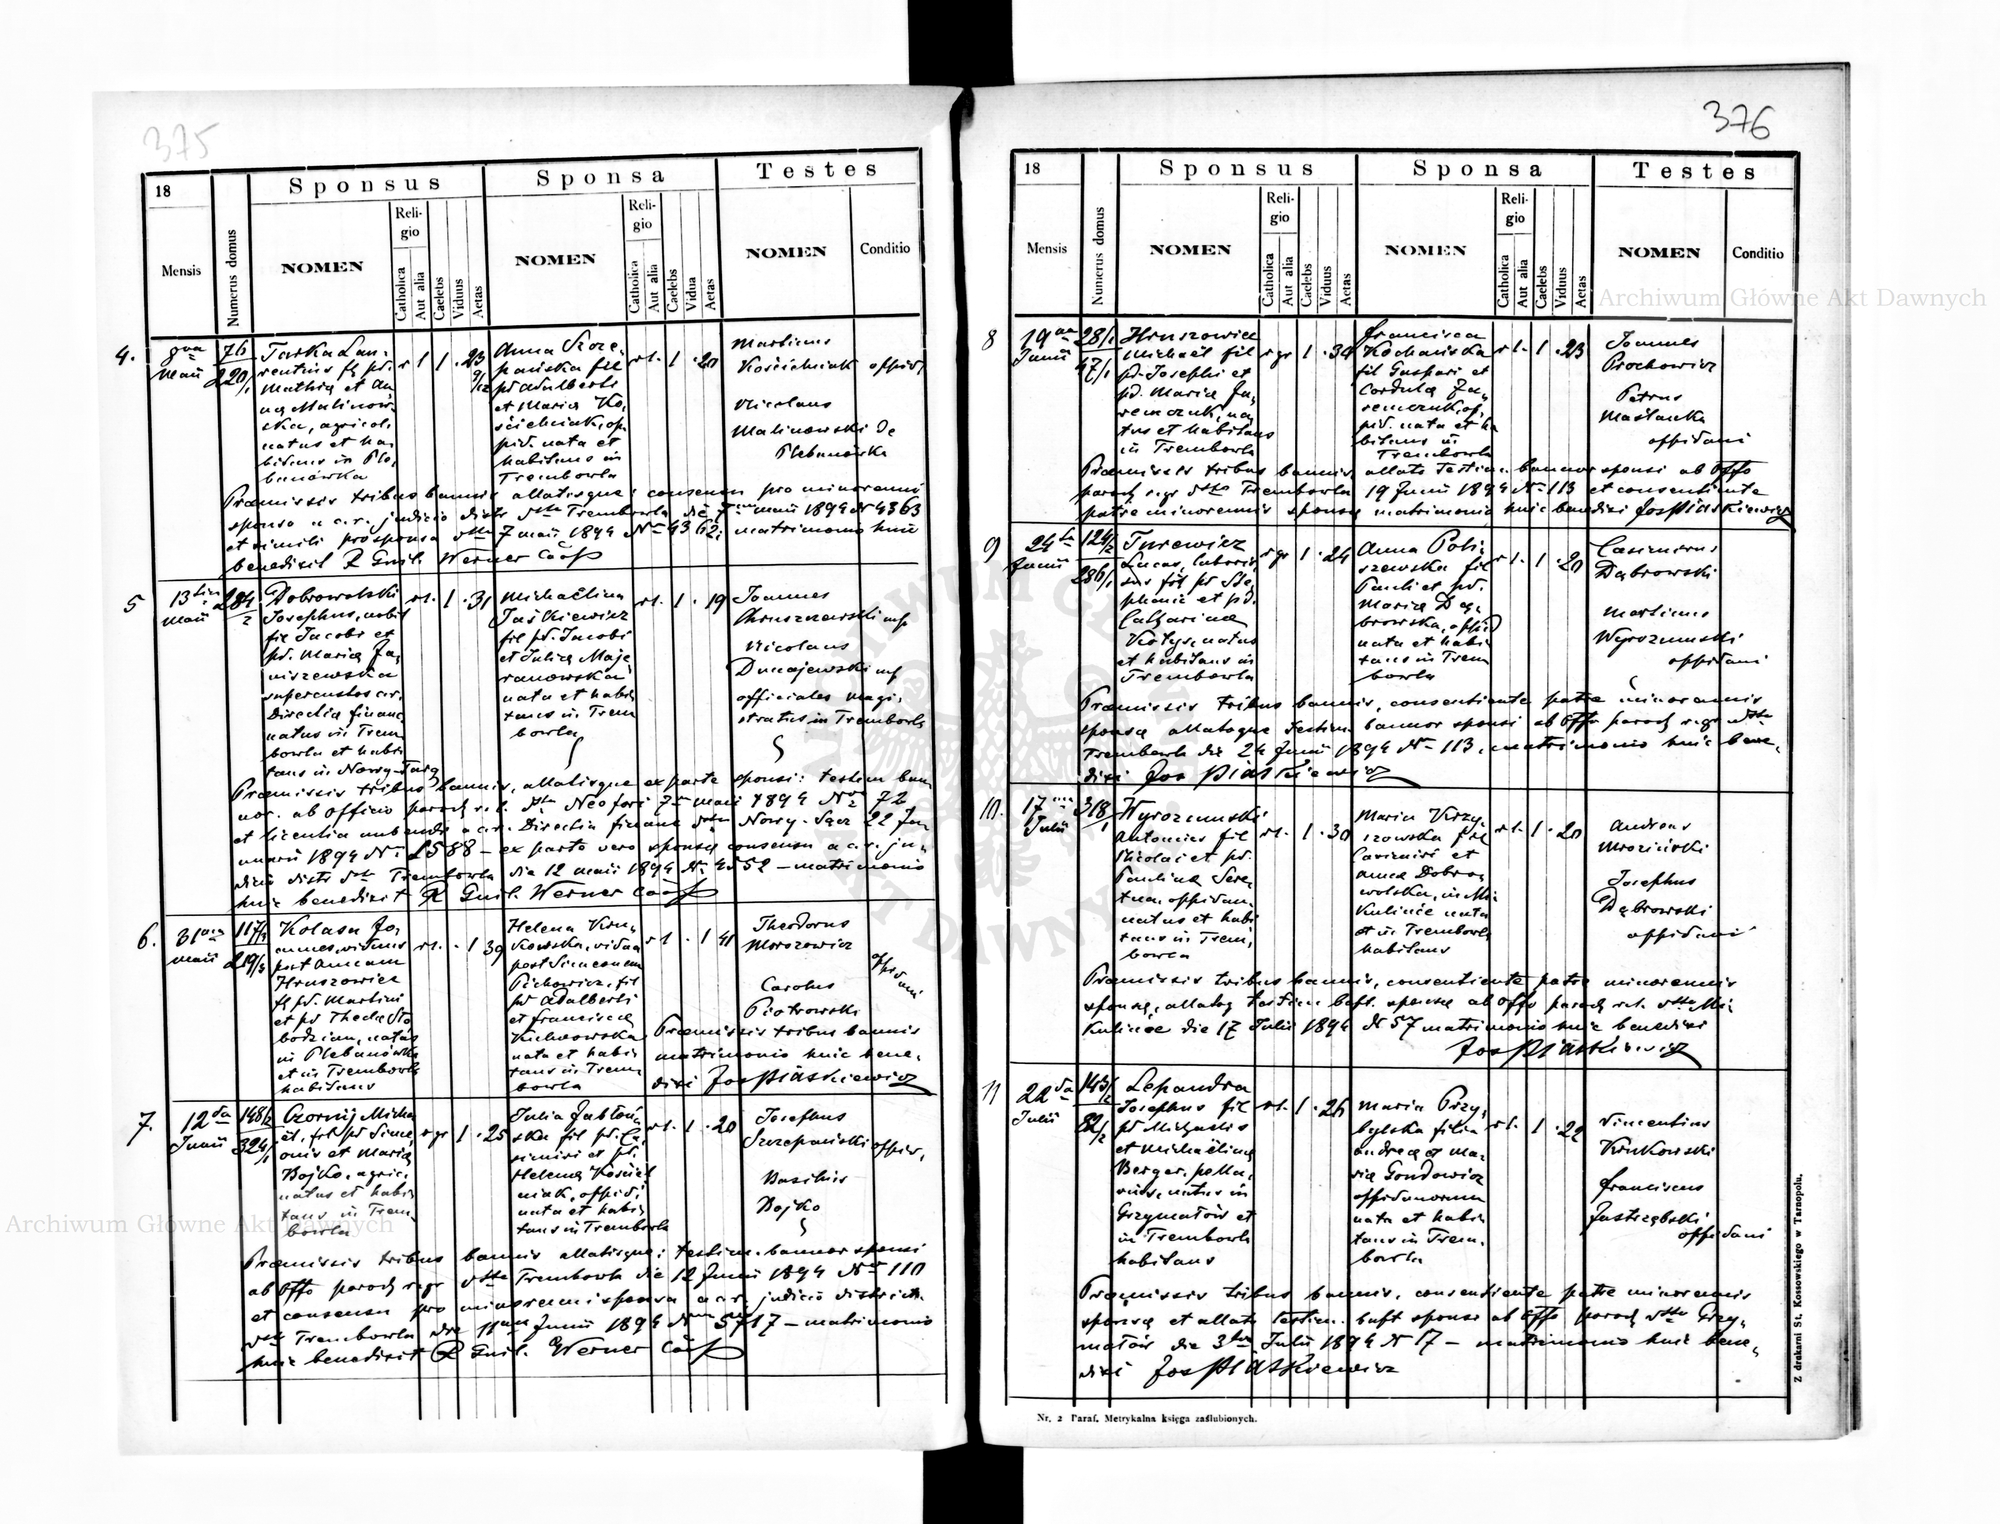 375
18
Sponsus
Sponsa
Testes
Mensis
Numerus domus
NOMEN
Religio
Catholica
Aut alia
Caelebs
Viduus
Aetas
NOMEN
Religio
Catholica
Aut alia
Caelebs
Vidua
Aetas
NOMEN
Conditio
4.
8va
Maii
76
220/1
Taska Lau-
rentius fil pd.
Mathiae et An
nae Malinow-
ska, agricol.
natus et ha-
bitans in Ple-
banówka
r l 1 . 23 9/12
Anna Szcze-
pańska fil
pd Adalberti
et Maria Ko-
ścielniak, op-
pid. nata et
habitans in
Trembowla
rl. 1 . 20
Martinus
Kościelniak oppid.
Nicolaus
Malinowski de
Plebanówka
Praemissis tribus bannis allatisque: consensu pro minorenni
sponso a c.r. judicio distr dtto Trembowla die 7ma maii 1894 N 4363
et simili pro sponsa dtto 7 maii 1894 No 4362; matrimonio huic
benedixit R Guil. Werner Coop
5
13tia
maii
284
2
Dobrowolski
Josephus, nobil
fil Jacobi et
pd. Maria Ja-
niszewska
supercustos c.r.
Directiae financ
natus in Trem
bowla et habi-
tans in Nowy-Targ
rl. 1 . 31
Michaëlina
Jaśkiewicz
fil pd. Jacobi
et Julia Maje-
ranowska
nata et habi-
tans in Trem
bowla
rl. 1 . 19
Joannes
Chruszczewski mp
Nicolaus
Dunajewski mp
officiales magi-
stratus in Trembowla
Praemissis tribus bannis, allatisque ex parte sponsi: testim ban-
nor. ab officio paroch r.l. dtto Neofori 7 maii 1894 No 72
et licentia nubendi a c.r. Directia financ dtto Nowy-Sącz 22 Jan-
nuarii 1894 No 2588 – ex parte vero sponsae consensu a c.r. ju-
dicii distr dtto Trembowla die 12 maii 1894 No 4552 – matrimonio
huic benedixit R Guil. Werner Coop
6.
31ma
maii
117/1
219/3
Kolasa Jo-
annes, viduus
post Annam
Hruszowiec
fil pd. Martini
et pd Thecla Sło
bodzian, natus
in Plebanówka
et in Trembowla
habitans
rl. . 1 39
Helena Kru-
kowska, vidua
post Simeonem
Pichowicz, fil
pd Adalberti
et Francisca
Kuchnowska
nata et habi-
tans in Trem
bowla
rl . 1 41
Theodorus
Morozowicz
Carolus
Piotrowski
oppidani
Praemissis tribus bannis
matrimonio huic bene-
dixi Jos Piaskiewicz
7.
12da
Junii
148/2
324/1
Czornij Micha
ël, fil pd Sime-
onis et Maria
Bojko, agric.
natus et habi-
tans in Trem-
bowla
r gr 1 . 25
Julia Jabłoń-
ska fil pd. Ca-
simiri et pd.
Helena Kościel
niak, oppid.
nata et habi-
tans in Trembowla
rl. 1 . 20
Josephus
Szczepański oppid.
Basilius
Bojko
Praemissis tribus bannis allatisque: testim. bannor sponsi
ab Offo paroch r.gr dtto Trembowla die 12 Junii 1894 No 110
et consensu pro minorenni sponsa a c.r. judicio district.
dtto Trembowla die 11ma Junii 1894 No 5717 – matrimonio
huic benedixit R Guil. Werner Coop
376
18
Sponsus
Sponsa
Testes
Mensis
Numerus domus
NOMEN
Religio
Catholica
Aut alia
Caelebs
Viduus
Aetas
NOMEN
Religio
Catholica
Aut alia
Caelebs
Viduus
Aetas
NOMEN
Conditio
8
19na
Junii
28/1
47/1
Hruszowiec
Michaël fil
pd. Josephi et
pd. Maria Ja-
remczuk, na-
tus et habitans
in Trembowla
r gr 1 . 34
Francisca
Kochańska
fil Gaspari et
Cordula Ja-
remczuk, op-
pid. nata et ha
bitans in
Trembowla
rl. 1 . 23
Joannes
Prochowicz
Petrus
Maślanka
oppidani
Praemissis tribus bannis, allato testim. bannor sponsi ab Offo
paroch r.gr dtto Trembowla 19 Junii 1894 No 113 et consentiente
patre minorennis sponsae matrimonio huic benedixi Jos Piaskiewicz
9
24ta
Junii
124/2
286/1
Turewicz
Lucas, laborio-
sus fil pd Ste-
phani et pd.
Catharina
Kotys, natus
et habitans in
Trembowla
r gr 1 . 24
Anna Poli-
szewska fil
Pauli et pd.
Maria Dą-
browska, oppid
nata et habi-
tans in Trem
bowla
rl. 1 . 20
Casimirus
Dąbrowski
Martinus
Wyrozumski
oppidani
Praemissis tribus bannis, consentiente patre minorennis
sponsae allatoque testim bannor sponsi ab Offo paroch r.gr dtto
Trembowla die 24 Junii 1894 No 113, matrimonio huic bene-
dixi Jos Piaskiewicz
10.
17ma
Julii
318
1
Wyrozumski
Antonius fil
Nicolai et pd.
Paulina Sere-
tna, oppidan.
natus et habi
tans in Trem-
bowla
rl. 1 . 30
Maria Krzy-
szowska fil
Casimiri et
Anna Dobro-
wolska, in Mi-
kulińce nata
et in Trembowla
habitans
rl. 1 . 20
Andreas
Mroziński
Josephus
Dąbrowski
oppidani
Praemissis tribus bannis, consentiente patre minorennis
sponsae, allatoq testim bapt. sponsae ab Offo paroch r.l. dtto Mi-
kulińce die 17 Julii 1894 N 57 matrimonio huic benedixi
Jos Piaskiewicz
11
22da
Julii
143/2
82/2
Lepandra
Josephus fil
et Michaëlina
Berger,
natus in
Grzymałów et
in Trembowla
habitans
rl. 1 . 26
Maria Przy-
bylska filia
Andrea et Ma-
ria Gondowicz
oppidanorum
nata et habi-
tans in Trem-
bowla
rl. 1 . 22
Vincentius
Krukowski
Franciscus
Jastrzębski
oppidani
Praemissis tribus bannis, consentiente patre minorennis
sponsae et allato testim. bapt sponsi ab Offo paroch dtto Grzy-
małów die 3tia Julii 1894 N 17 – matrimonio huic bene-
dixi Jos Piaskiewicz
Nr. 2 Paraf. Metrykalna księga zaślubionych.
Z drukarni St. Kossowskiego w Tarnopolu.
Archiwum Główne Akt Dawnych
Archiwum Główne Akt Dawnych